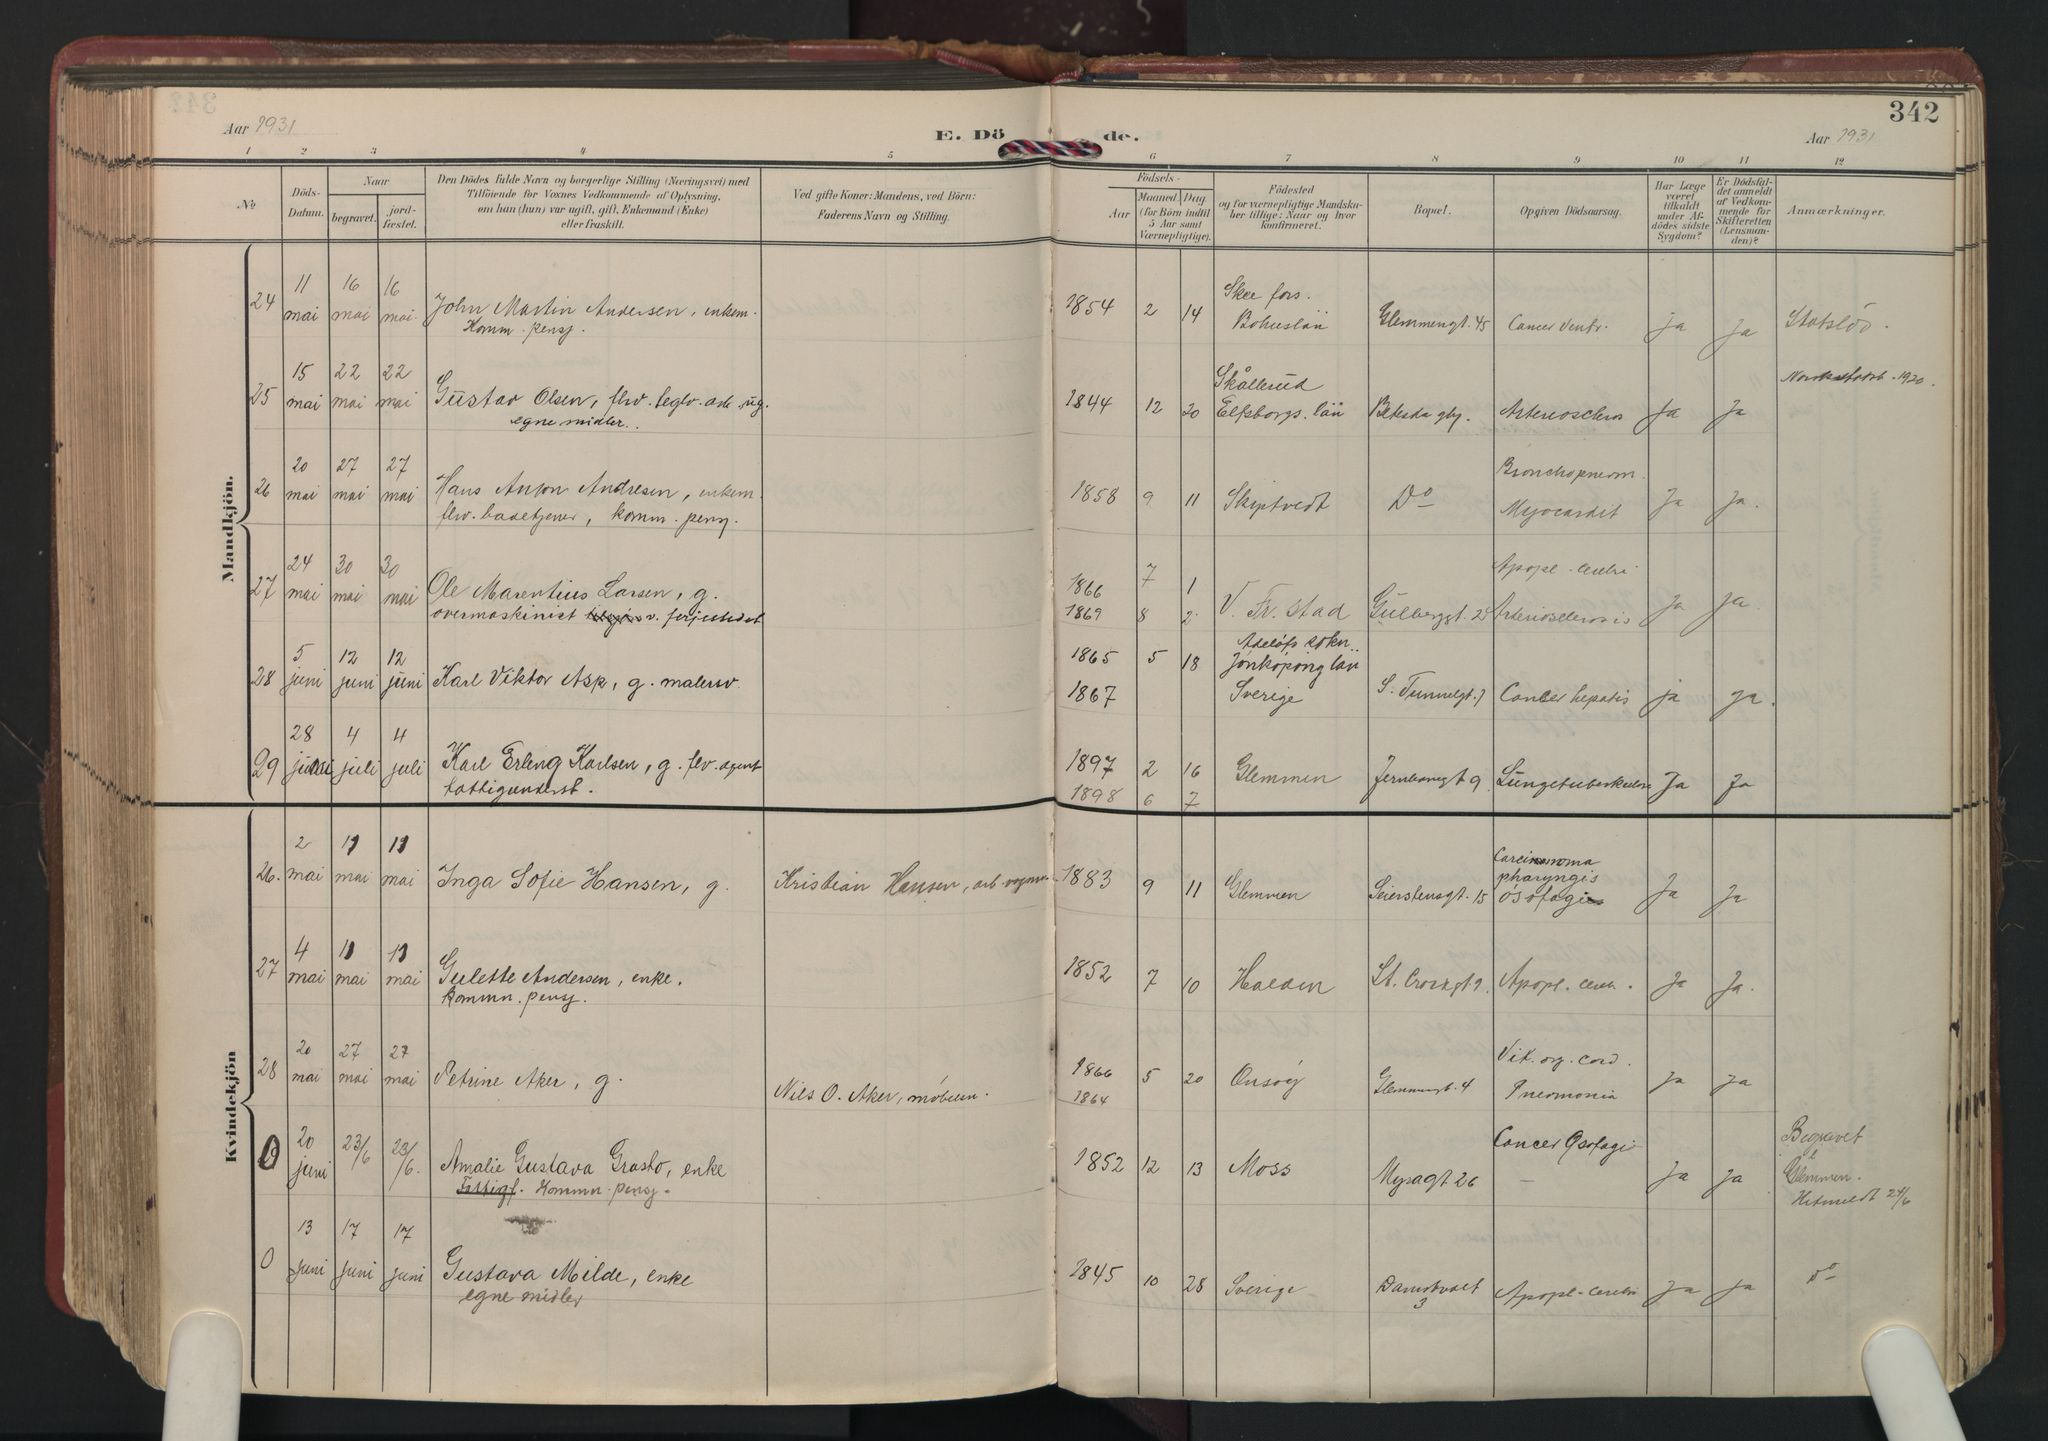 342
Aar 1931
E. Dö de.
Aar 1931
1 2 3 4 5 6 7 8 9 10 11 12
№
Döds-Datum.
Naar
begravet. jord-fæstet.
Den Dödes fulde Navn og borgerlige Stilling (Næringsvei) med
Tilföiende for Voxnes Vedkommende af Oplysning,
om han (hun) var ugift, gift, Enkemand (Enke)
eller fraskilt.
Ved gifte Koner: Mandens, ved Börn:
Faderens Navn og Stilling.
Födsels-
Aar
Maaned. Dag
(for Börn indtil
5 Aar samt
Værnepligtige).
Födested
og for værnepligtige Mandska-
ber tillige: Naar og hvor
konfirmeret.
Bopæl.
Opgiven Dödsaarsag.
Har Læge
været
tilkaldt
under Af-
dödes sidste
Sygdom?
Er Dödsfal-
det anmeldt
af Vedkom-
mende for
Skifteretten
(Lensman-
den)?
Anmærkninger.
Mandkjön.
24 11 mai 16 mai 16 mai
John Martin Andersen, enkem.
Komm. pensj.
1854 2 14 Skee fors.
Bohuslän Glemmengt. 45 Cancer Ventr. Ja Ja Statslös.
25 15 mai 22 mai 22 mai
Gustav Olsen, flrv. teglv. arb. ug.
egne midler.
1844 12 20 Skållerud
Elfsborgs län Betesda gbg. Arterioscleros Ja Ja Norsk statsb. 1920.
26 20 mai 27 mai 27 mai
Hans Anton Andresen, enkem.
flrv. badetjener, komm. pensj.
1858 9 11 Skiptvedt Do Bronchopneom.
Myocardit Ja Ja.
27 24 mai 30 mai 30 mai
Ole Marentius Larsen, g.
overmaskinist v. ferjestedet
1866 7 1
1869 8 2 V. Fr. stad Gulberggt. 25 Apopl. cerebri
Arteriosclerosis Ja Ja
28 5 juni 12 juni 12 juni
Karl Viktor Asp, g. malersv.
1865 5 18
1867 Adelöfs sokn.
Jönköping län
Sverige S. Tunnelgt. 7 Cancer hepatis Ja Ja.
29 28 juni 4 juli 4 juli
Karl Erling Karlsen, g. flv. agent
fattigunderst.
1897 2 16
1898 6 7 Glemmen Jernbanegt 9 Lungetuberkulose Ja Ja
Kvindekjön
26. 2 mai 11 mai 11 mai
Inga Sofie Hansen, g.
Kristian Hansen, arb.
1883 9 11 Glemmen Seierstensgt. 15 Carcinoma
pharyngis
ösofagi Ja Ja
27 4 mai 11 mai 11 mai
Gulette Andersen, enke.
kommn. pensj.
1852 7 10 Halden St. Croixgt 9. Apopl. cerebr. Ja Ja.
28 20 mai 27 mai 27 mai
Petrine Aker, g.
Nils O. Aker, möbelsn.
1866 5 20
1864 Onsöy Glemmengt. 4 Vit. org. cord.
Pneomonia Ja Ja
0 20 juni 23/6 23/6.
Amalie Gustava Grasto, enke
Fattigf. Kommn. pensj.
1852 12 13 Moss Myragt 26 Cancer Ösofagi
— Ja Ja Begravet
Gl
Glemmen.
Hitmeldt 24/6
0 13 juni 17 juni 17 juni
Gustava Milde, enke
egne midler
1845 10 28 Sverige Damstredet
3 Apopl. cerebri Ja Ja Do